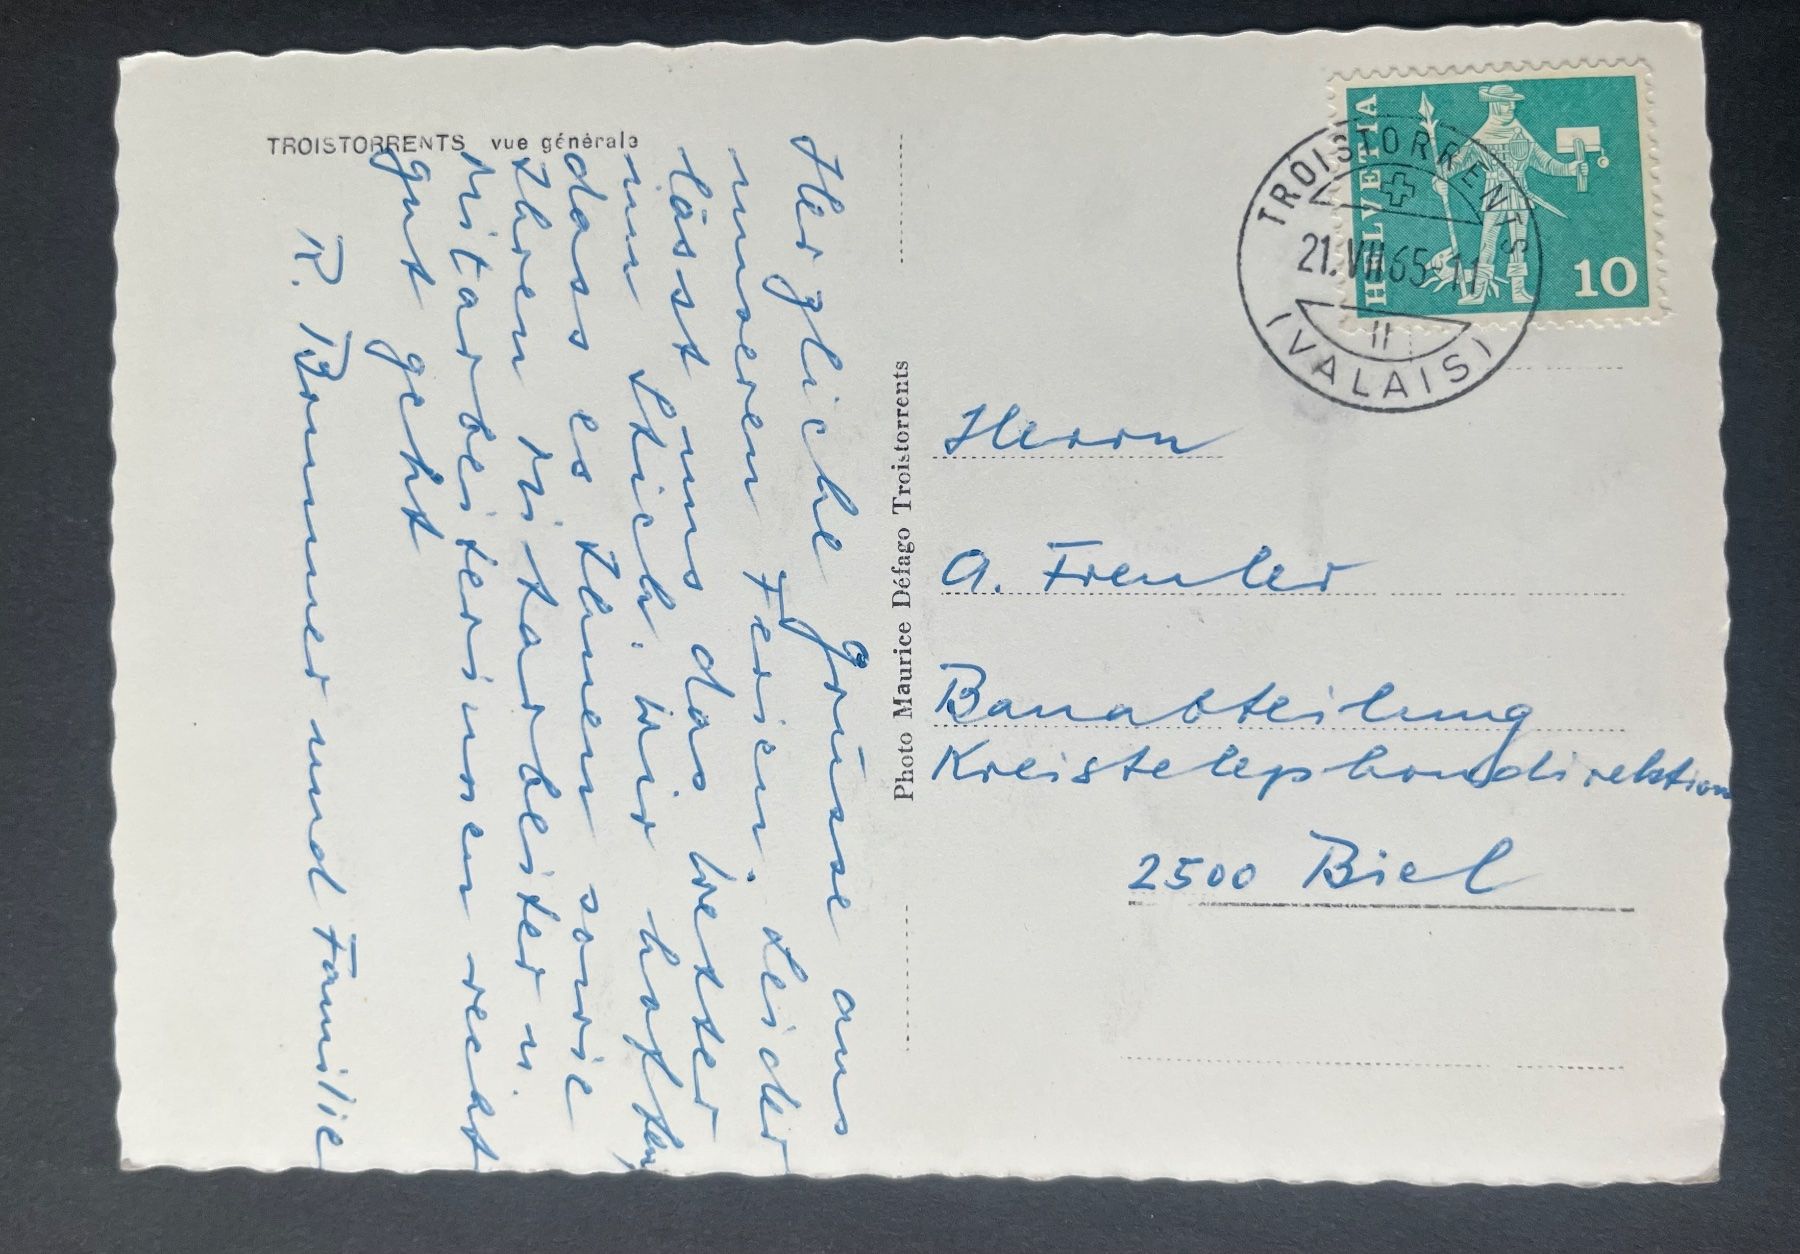 TROISTORRENTS vue générale
Herzliche Grüsse aus
unseren Ferien. Leider
lässt uns das Wetter
im Stich. Wir hoffen,
dass es Ihnen sowie
Ihren Mitarbeiter u.
Mitarbeiterinnen recht
gut geht
R. Brunner und Familie
Photo Maurice Défago Troistorrents
HELVETIA
10
TROISTORRENTS
21.VII.65-11
(VALAIS)
Herrn
A. Freuler
Bauabteilung
Kreistelephondirektion
2500 Biel